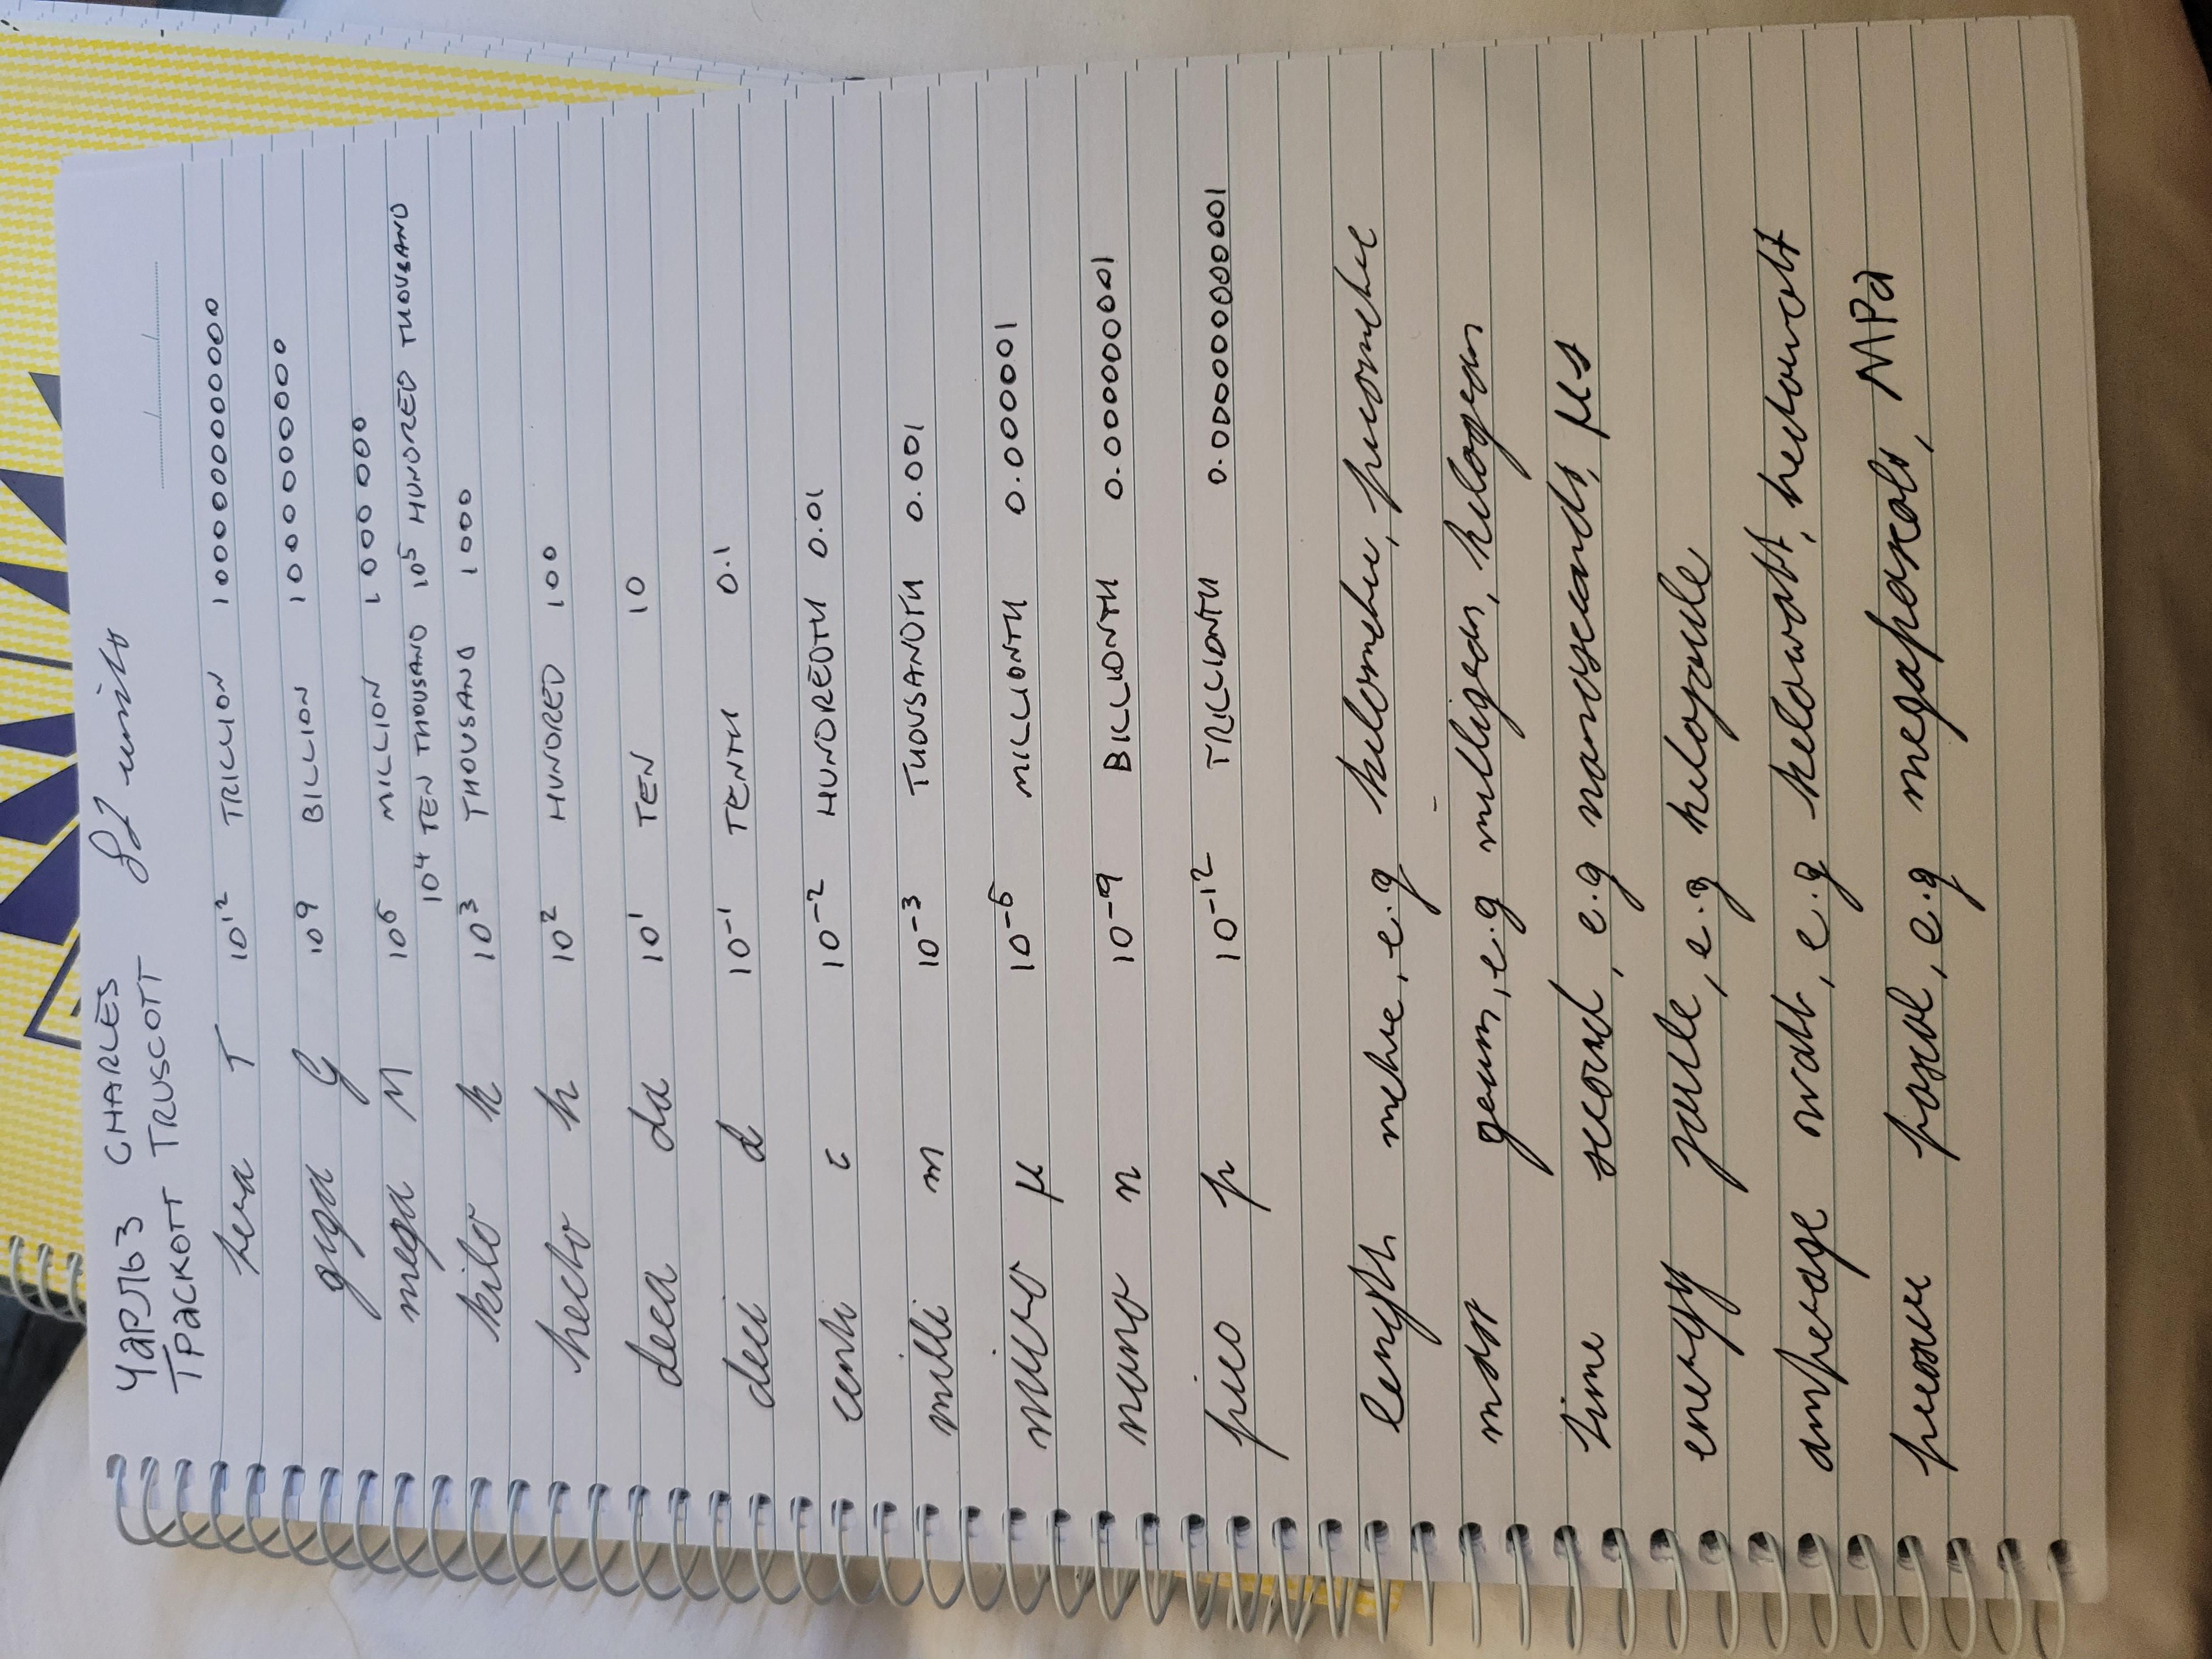 Чарльз CHARLES SI units
Траскотт TRUSCOTT
tera T 10¹² TRILLION 1000000000000
giga G 10⁹ BILLION 1000000000
mega M 10⁶ MILLION 1000 000
10⁴ TEN THOUSAND 10⁵ HUNDRED THOUSAND
kilo k 10³ THOUSAND 1000
hecto h 10² HUNDRED 100
deca da 10¹ TEN 10
deci d 10⁻¹ TENTH 0.1
centi c 10⁻² HUNDREDTH 0.01
milli m 10⁻³ THOUSANDTH 0.001
micro μ 10⁻⁶ MILLIONTH 0.000001
nano n 10⁻⁹ BILLIONTH 0.000000001
pico p 10⁻¹² TRILLIONTH 0.000000000001
length metre, e.g kilometre, picometre
mass gram, e.g milligram, kilogram
time second, e.g nanoseconds, μs
energy joule, e.g kilojoule
amperage watt, e.g kilowatt, hectowatt
pressure pascal, e.g megapascals, MPa